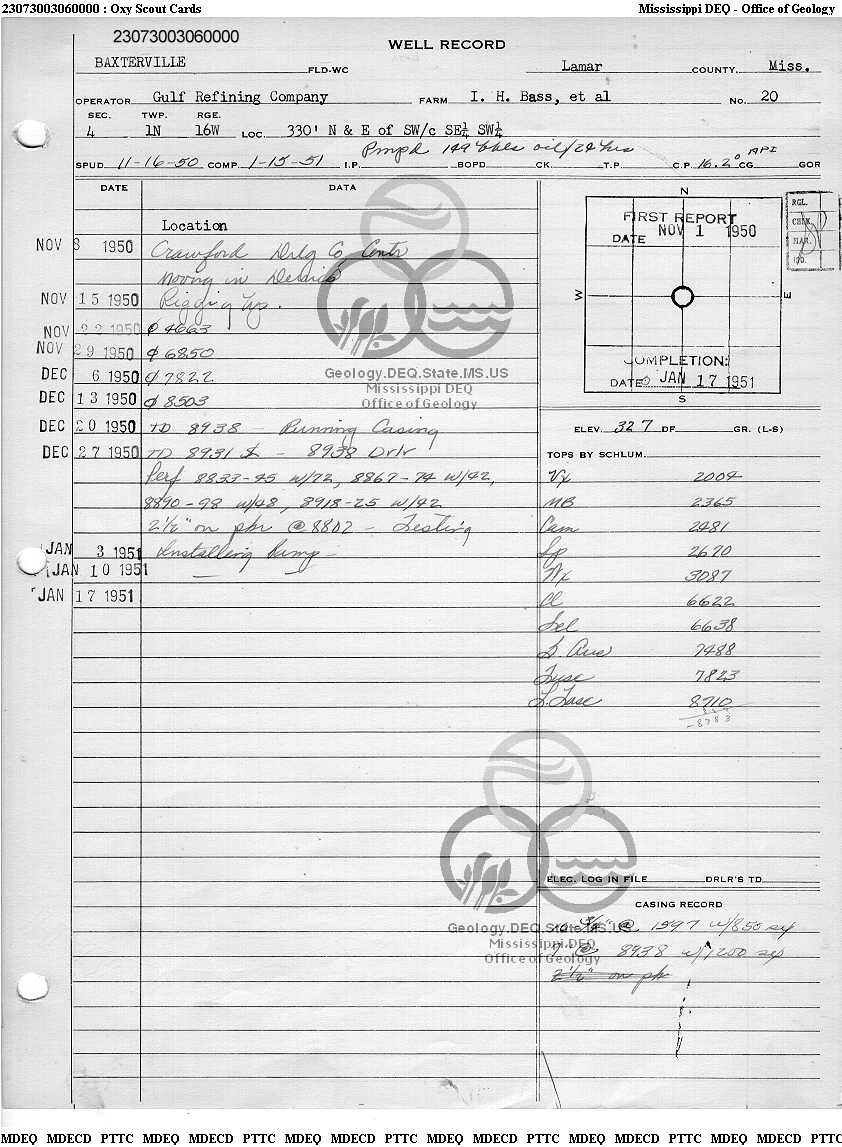 23073003060000 : Oxy Scout Cards Mississippi DEQ - Office of Geology
23073003060000
WELL RECORD
BAXTERVILLE FLD-WC Lamar COUNTY Miss.
OPERATOR Gulf Refining Company FARM I. H. Bass, et al No. 20
SEC. TWP. RGE.
4 1N 16W LOC. 330' N & E of SW/c SE¼ SW¼
Pmpd 149 bbls oil/24 hrs
SPUD 11-16-50 COMP. 1-15-51 I.P. BOPD CK. T.P. C.P. 16.2° API CG GOR
DATE DATA
Location
NOV 8 1950 Crawford Drlg Co Contr
Moving in Derrick
NOV 15 1950 Rigging Up.
NOV 22 1950 @ 4663
NOV 29 1950 @ 6850
DEC 6 1950 @ 7822
DEC 13 1950 @ 8503
DEC 20 1950 TD 8938 - Running Casing
DEC 27 1950 TD 8931 - 8938 Drlr
Perf 8833-45 w/72, 8867-74 w/42,
8890-98 w/48, 8918-25 w/42
2½" on pkr @ 8802 - Testing
JAN 3 1951 Installing Pump -
JAN 10 1951
JAN 17 1951
N
FIRST REPORT
DATE NOV 1 1950
W E
COMPLETION:
DATE JAN 17 1951
S
RGL.
CHEK.
MAR.
ELEV. 327 DF GR. (L-S)
TOPS BY SCHLUM.
Vx 2004
MB 2365
Cam 2481
Lp 2670
Wx 3087
Cl 6622
Sel 6638
7488
Tusc 7823
L. Tusc 8710
-8383
ELEC. LOG IN FILE DRLR'S TD
CASING RECORD
10 3/4" @ 1597 w/850 sx
7" @ 8938 w/1200 sx
2½" on pkr
Geology.DEQ.State.MS.US
Mississippi DEQ
Office of Geology
Geology.DEQ.State.MS.US
Mississippi DEQ
Office of Geology
MDEQ MDECD PTTC MDEQ MDECD PTTC MDEQ MDECD PTTC MDEQ MDECD PTTC MDEQ MDECD PTTC MDEQ MDECD PTTC